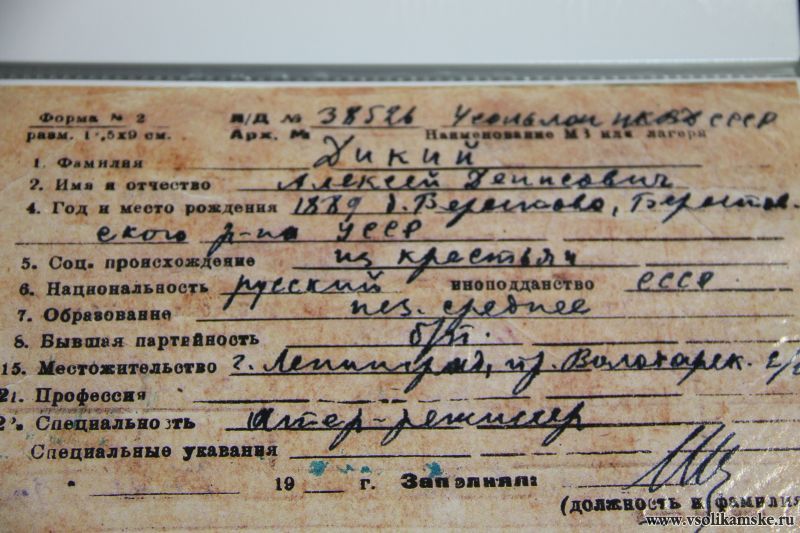 Форма № 2 Л/Д № 38526 Усольлаг НКВД СССР
разм. 1 ,5х9 см. Арх. № Наименование МЗ или лагеря
1. Фамилия Дикий
2. Имя и отчество Алексей Денисович
4. Год и место рождения 1889
ского р-на УССР
5. Соц. происхождение из крестьян
6. Национальность русский иноподданство СССР
7. Образование нез. среднее
8. Бывшая партийность б/п.
15. Местожительство г. Ленинград, пр. Володарск.
21. Профессия
2 . Специальность Актер-режиссер
Специальные указания
19 г. Заполнил:
(должность и фамилия
www.vsolikamske.ru